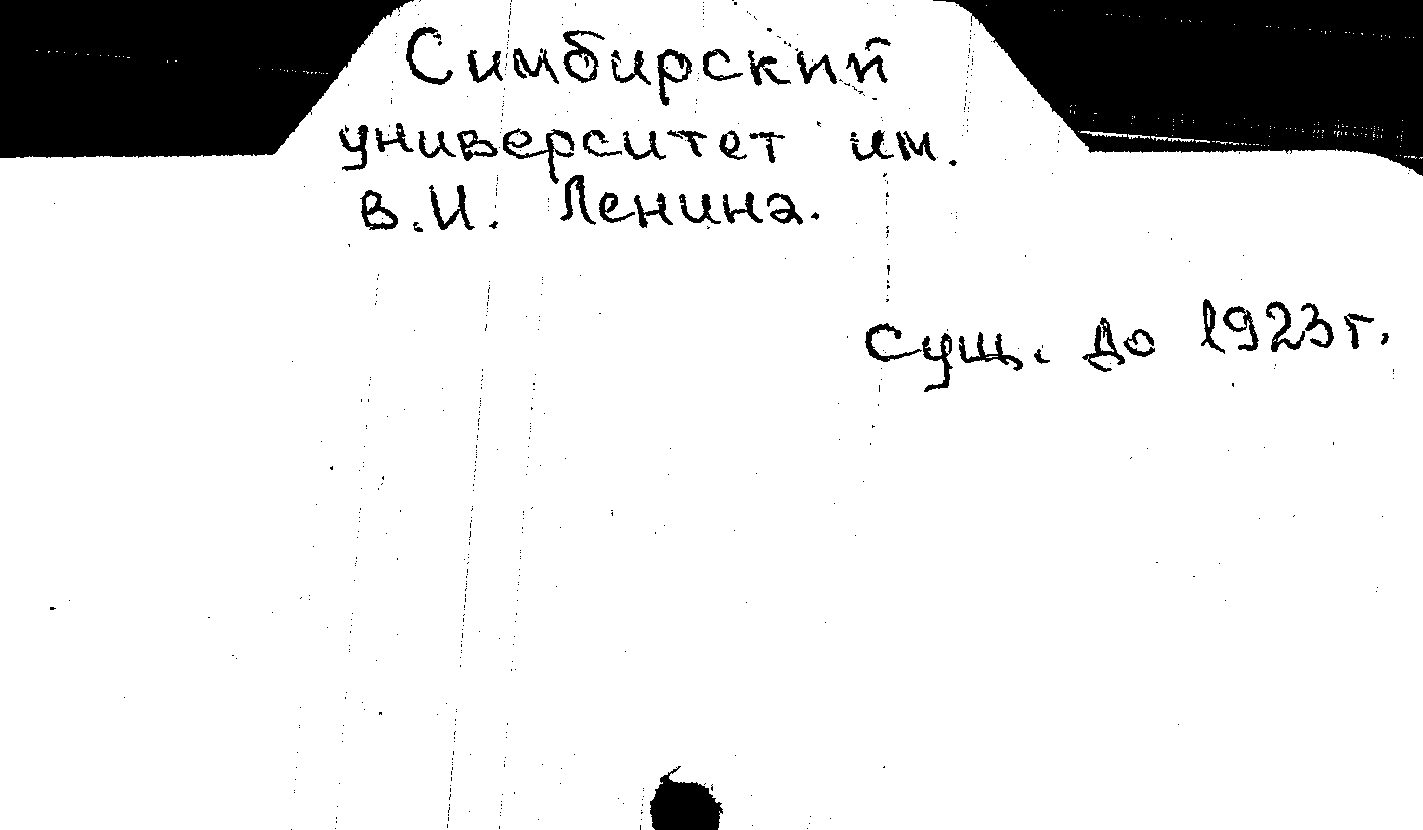 Симбирский
университет им.
В.И. Ленина.
Сущ. до 1923г.